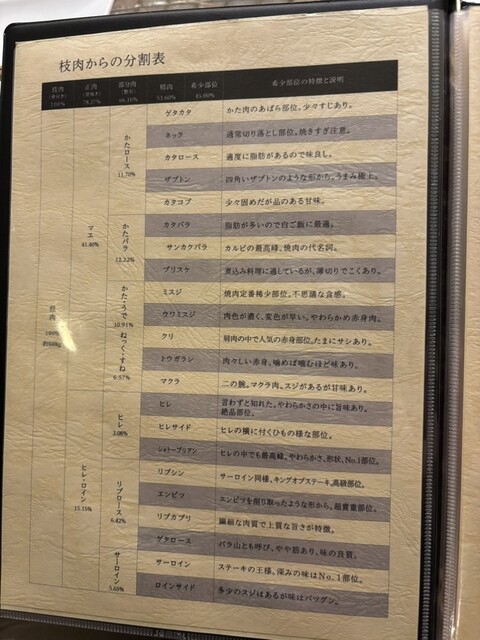 枝肉からの分割表
枝肉 正肉 部分肉 精肉 希少部位 希少部位の特徴と説明
100% 78.37% 68.16% 53.60% 45.00%
枝肉
100%
マエ
41.40%
かたロース
11.70%
かたバラ
12.22%
かた・うで
10.91%
ねっく・すね
6.57%
ヒレ・ロイン
15.15%
ヒレ
3.08%
リブロース
6.42%
サーロイン
5.65%
ゲタカタ かた肉のあばら部位。少々すじあり。
ネック 通常切り落とし部位。焼きすぎ注意。
カタロース 適度に脂肪があるので味良し。
ザブトン 四角いザブトンのような形から。うまみ極上。
カタコブ 少々固めだが品のある甘味。
カタバラ 脂肪が多いので白ご飯に最適。
サンカクバラ カルビの最高峰、焼肉の代名詞。
ブリスケ 煮込み料理に適しているが、薄切りでこくあり。
ミスジ 焼肉定番稀少部位。不思議な食感。
ウワミスジ 肉色が濃く、変色が早い。やわらかめ赤身肉。
クリ 肩肉の中で人気の赤身部位。たまにサシあり。
トウガラシ 肉々しい赤身、噛めば噛むほど味あり。
マクラ 二の腕。マクラ肉。スジがあるが甘味あり。
ヒレ 言わずと知れた。やわらかさの中に旨味あり。
絶品部位。
ヒレサイド ヒレの横に付くひもの様な部位。
シャトーブリアン ヒレの中でも最高峰。やわらかさ、形状、No.1部位。
リブシン サーロイン同様、キングオブステーキ。高級部位。
エンピツ エンピツを削り取ったような形から。超貴重部位。
リブカブリ 繊細な肉質で上質な旨さが特徴。
ゲタロース バラ山とも呼び、やや筋あり、味の良質。
サーロイン ステーキの王様。深みの味はNo.1部位。
ロインサイド 多少のスジはあるが味はバツグン。